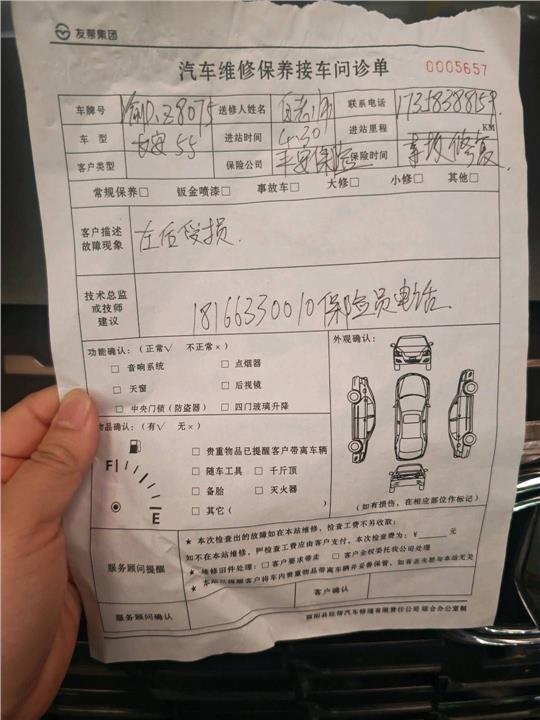 友帮集团
汽车维修保养接车问诊单 0005657
车牌号 送修人姓名 联系电话
车型 长安55 进站时间 4.30 进站里程 KM
客户类型 保险公司 平安保险 保险时间 事故修复
常规保养□ 钣金喷漆□ 事故车□ 大修□ 小修□ 其他□
客户描述
故障现象
左后受损.
技术总监
或技师
建议
18166330010保险员电话
功能确认：（正常√ 不正常×）
□ 音响系统 □ 点烟器
□ 天窗 □ 后视镜
□ 中央门锁（防盗器） □ 四门玻璃升降
外观确认：
（如有损伤，在相应部位作标记）
物品确认：（有√ 无×）
F
E
□ 贵重物品已提醒客户带离车辆
□ 随车工具 □ 千斤顶
□ 备胎 □ 灭火器
□ 其它（ ）
服务顾问提醒
★ 本次检查出的故障如在本站维修，检查工费不另收取；
如不在本站维修，则检查工费应由客户支付，本次检查费为：¥ 元
★ 维修旧件处理：□ 客户要求带走 □ 客户全权委托我公司处理
★ 本站已提醒客户将车内贵重物品带离车辆并妥善保管，如有丢失恕与本站无关
服务顾问确认 客户确认
汽车修理有限责任公司 综合办公室制